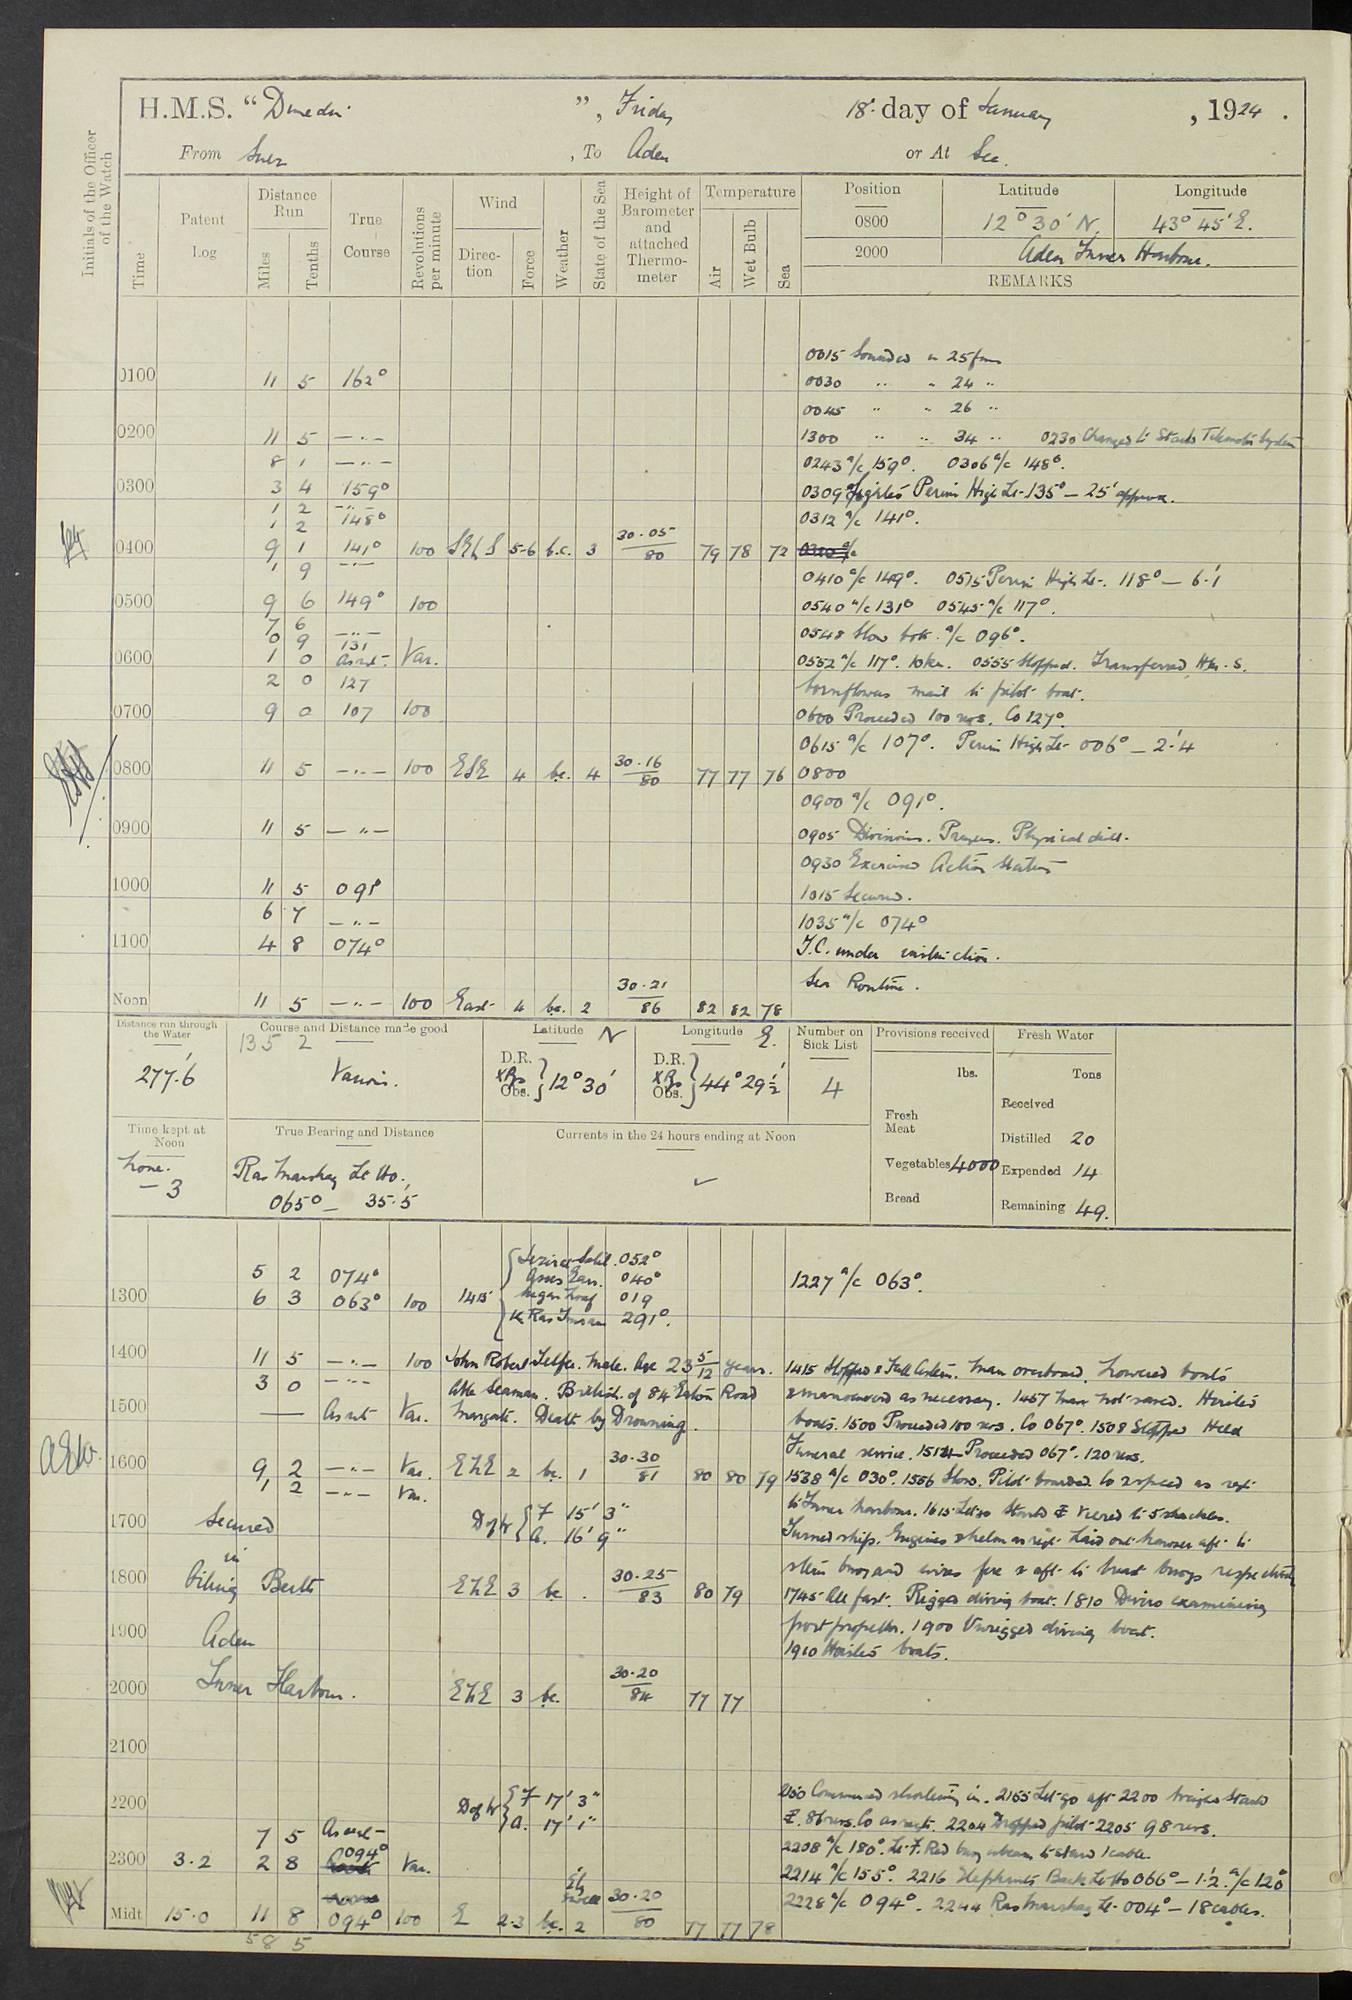 H.M.S. "Dunedin", Friday 18th day of January, 1924.
From Suez, To Aden or At Sea.
Initials of the Officer of the Watch
Time
Patent Log
Distance Run
Miles
Tenths
True Course
Revolutions per minute
Wind
Direction
Force
Weather
State of the Sea
Height of Barometer and attached Thermometer
Temperature
Air
Wet Bulb
Sea
Position Latitude Longitude
0800 12° 30' N. 43° 45' E.
2000 Aden Inner Harbour.
REMARKS
0015 Sounded in 25 fms
0100 11 5 162° 0030 " " 24 "
0045 " " 26 "
0200 11 5 —"— 1300 " " 34 " 0230 Changed to Starbd Telemotor system
8 1 —"— 0243 a/c 159°. 0306 a/c 148°.
0300 3 4 159° 0309 Sighted Perim High Lt 135° — 25' approx.
1 2 —"—
1 2 148° 0312 a/c 141°.
0400 9 1 141° 100 5-6 b.c. 3 30.05 80 79 78 72
1 9 —"— 0410 a/c 149°. 0515 Perim High Lt. 118° — 6.'1
0500 9 6 149° 100 0540 a/c 131° 0545 a/c 117°.
7 6 —"— 0548 Slow both. a/c 096°.
0 9 131
0600 1 0 As reqt. Var. 0552 a/c 117°. 10 kn. 0555 Stopped. Transferred H.M.S.
2 0 127 Cornflower mail to pilot boat.
0700 9 0 107 100 0600 Proceeded 100 revs. Co 127°.
0615 a/c 107°. Perim High Lt 006° — 2.'4
0800 11 5 —"— 100 ESE 4 bc. 4 30.16 80 77 77 76 0800
0900 a/c 091°.
0900 11 5 —"— 0905 Divisions. Prayers. Physical drill.
0930 Exercised Action Stations
1000 11 5 091° 1015 Secured.
6 7 —"— 1035 a/c 074°
1100 4 8 074° T.C. under instruction.
Sea Routine.
Noon 11 5 —"— 100 East 4 bc. 2 30.21 86 82 82 78
Distance run through the Water
277.'6
Course and Distance made good
135 2
Various.
Latitude N
D.R. Obs. 12° 30'
Longitude E.
D.R. Obs. 44° 29½'
Number on Sick List
4
Provisions received
lbs.
Fresh Meat
Vegetables 4000
Bread
Fresh Water
Tons
Received
Distilled 20
Expended 14
Remaining 49.
Time kept at Noon
Zone.
— 3
True Bearing and Distance
Ras Marshag Lt Ho.,
065° — 35.5
Currents in the 24 hours ending at Noon
✓
5 2 074° 052°
Asses Ears. 040° 1227 a/c 063°.
1300 6 3 063° 100 1415 Sugar Loaf 019
Ras Imran 291°.
1400 11 5 —"— 100 John Robert Telfer. Male. Age 23 5/12 years. 1415 Stopped & Full Astern. Man overboard. Lowered boats
3 0 —"— Able Seaman. British. of 84 Eaton Road & manoeuvred as necessary. 1457 Man not saved. Hoisted
1500 — As reqt Var. Margate. Death by Drowning. boats. 1500 Proceeded 100 revs. Co 067°. 1508 Stopped Held
Funeral service. 1512 Proceeded 067°. 120 revs.
1600 9 2 —"— Var. 2 bc. 1 30.30 81 80 80 79 1538 a/c 030°. 1556 Slow. Pilot boarded. Co & speed as reqt
1 2 —"— Var. to Inner harbour. 1615 Let go Starbd & veered to 5 shackles.
1700 Secured Dg W F 15' 3" A. 16' 9" Turned ship. Engines & helm as reqt. Laid out hawser aft to
in stern buoy and wires fore & aft to breast buoys respectively
1800 Oiling Berth 3 bc 30.25 83 80 79 1745 All fast. Rigged diving boat. 1810 Divers examining
port propeller. 1900 Unrigged diving boat.
1900 Aden 1910 Hoisted boats.
2000 Inner Harbour. 3 bc. 30.20 84 77 77
2100
2150 Commenced shortening in. 2155 Let go aft 2200 Weighed Starbd
2200 Dg W F 17' 3" A. 17' 1" 86 revs. Co as reqt. 2204 Dropped pilot 2205 98 revs.
7 5 As reqt 2208 a/c 180°. Red buoy abeam to starbd 1 cable.
2300 3.2 2 8 094° Var. 2214 a/c 155°. 2216 Elephants Back Lt Ho 066° — 1.'2. a/c 120°
swell 2228 a/c 094°. 2244 Ras Marshag Lt. 004° — 18 cables.
Midt 15.0 11 8 094° 100 E 2-3 bc. 2 30.20 80 77 77 78
58 5